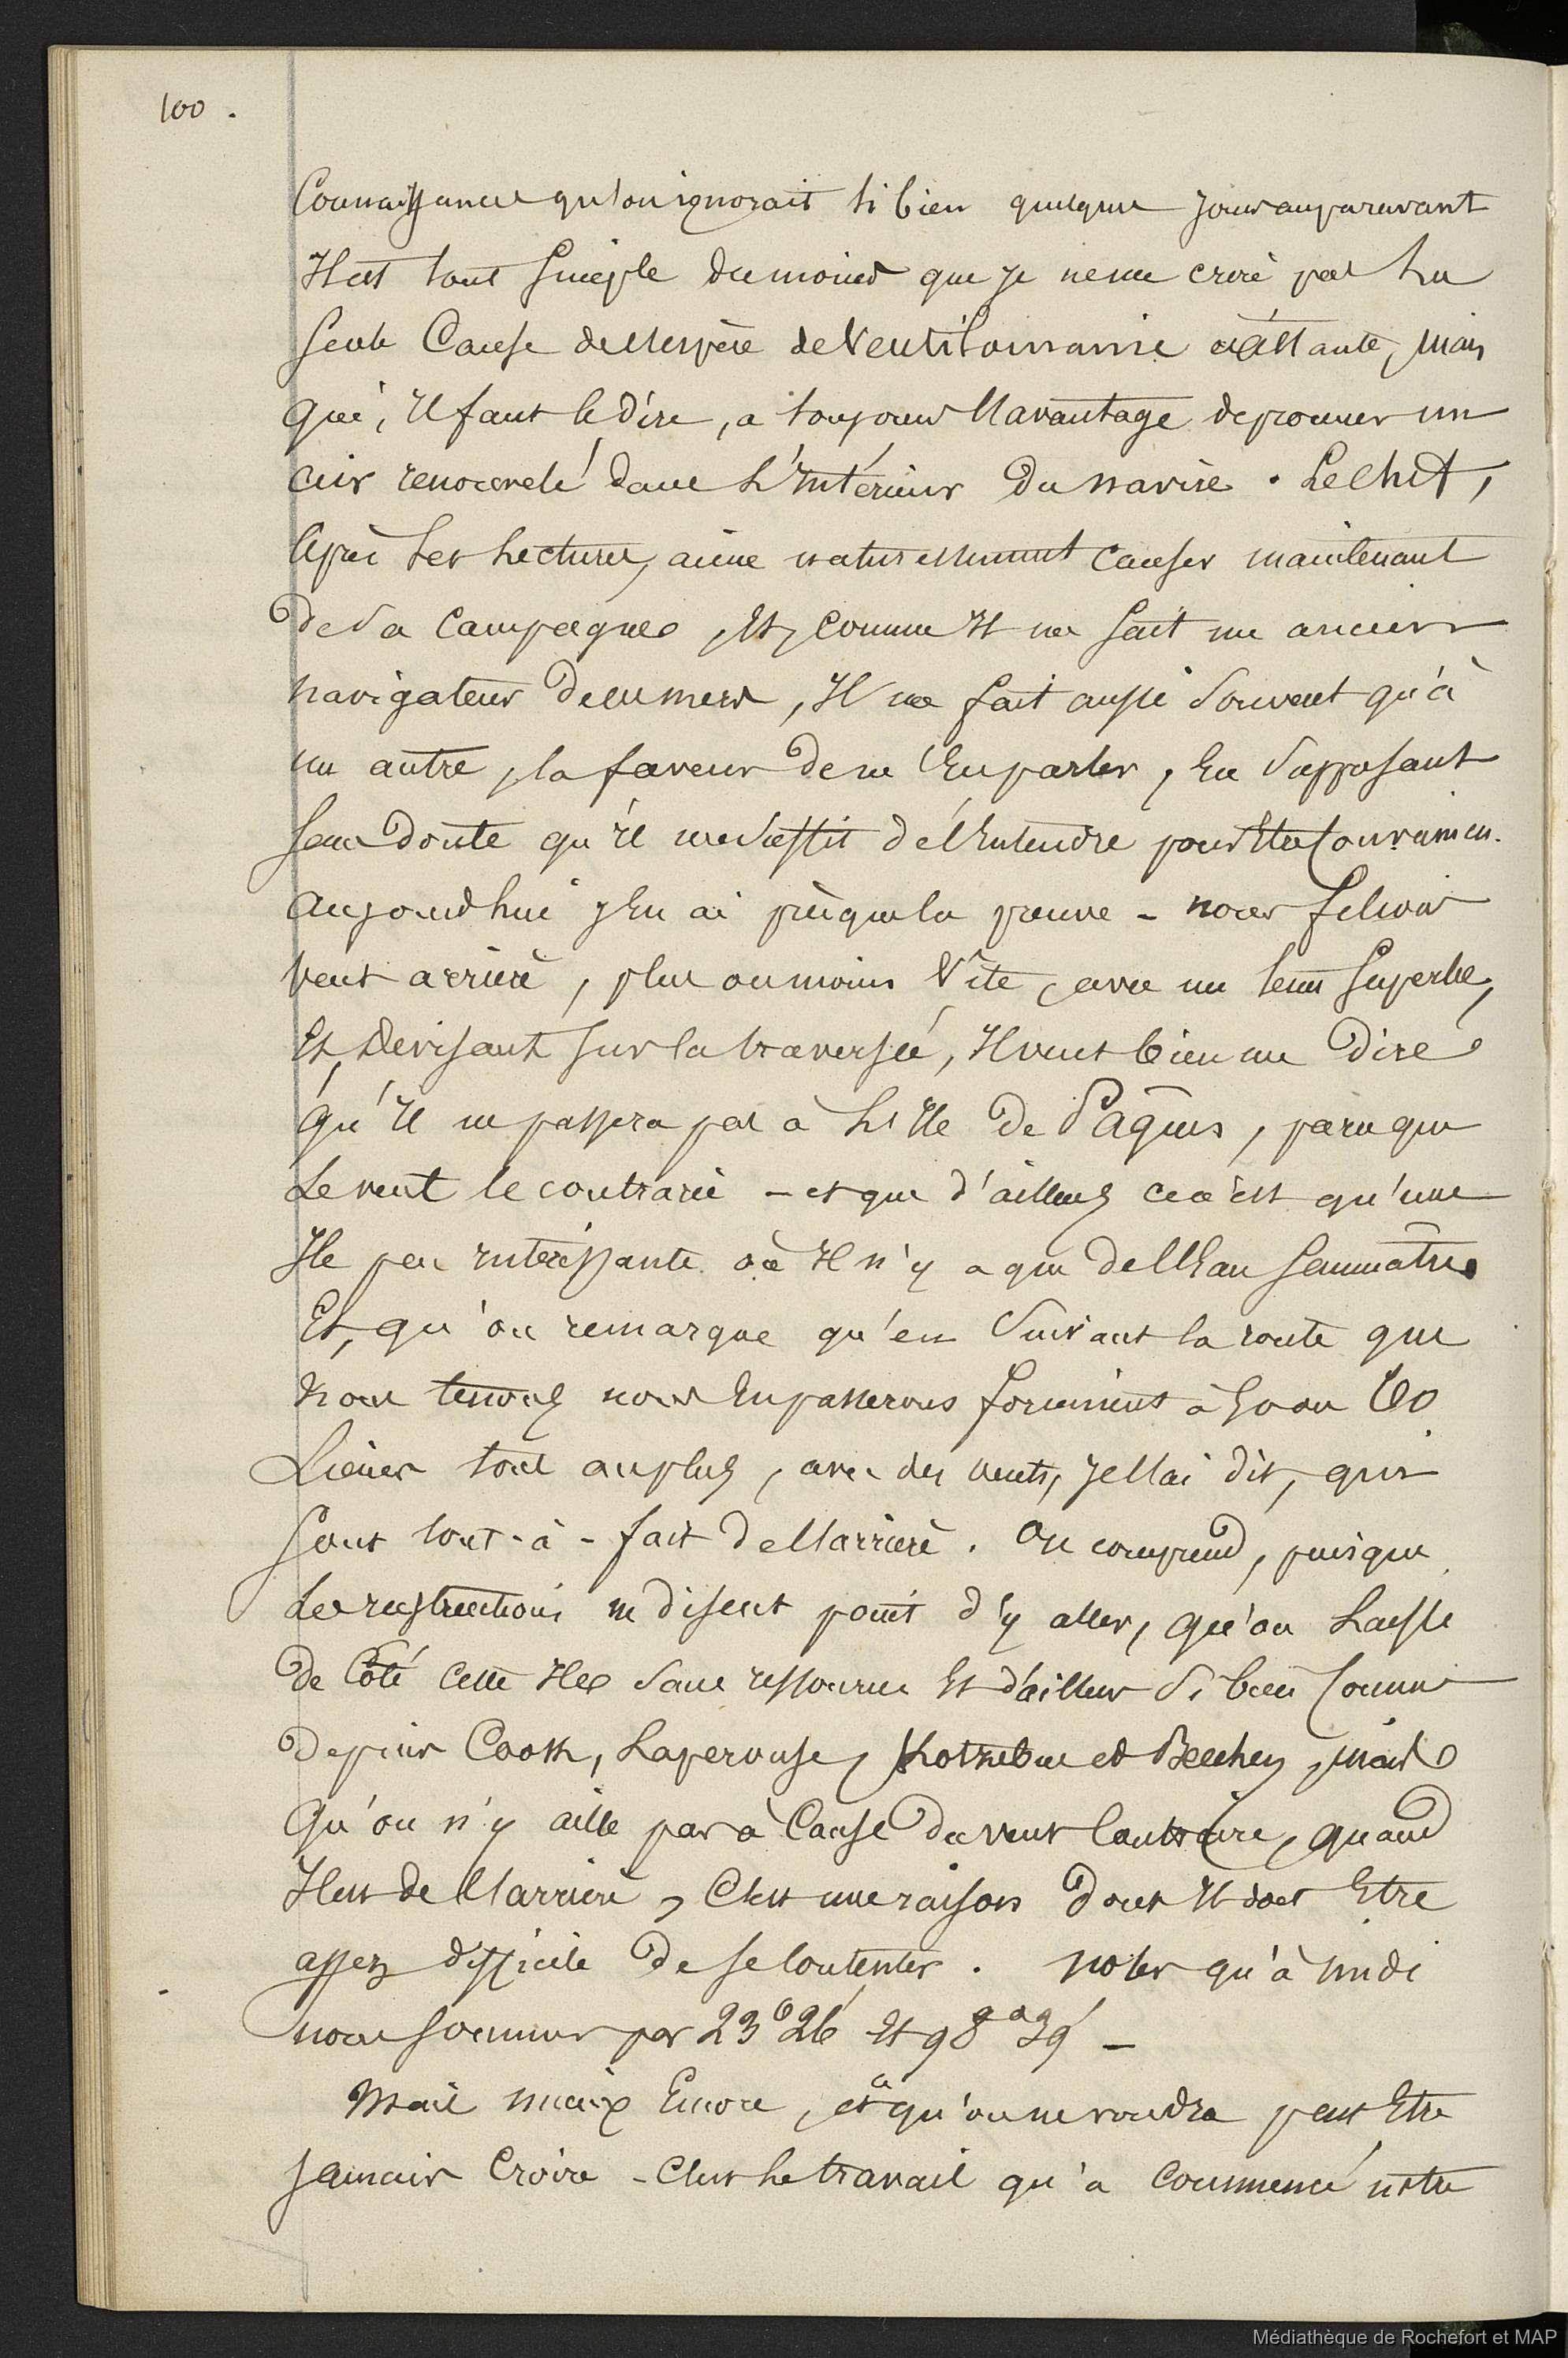 100.
Connaissances qu'on ignorait si bien quelques jours auparavant
Il est tout simple du moins que je ne me croie pas la
seule Cause de l'espèce de Ventilomanie existante, mais
qui, il faut le dire, a toujours l'avantage de procurer un
air renouvelé dans L'Intérieur Du navire. Le chef,
Après ses Lectures, aime naturellement causer maintenant
De sa Campagne, Et, comme Il me sait un ancien
navigateur de ces mers, Il me fait aussi souvent qu'à
un autre, la faveur de m'En parler, En supposant
sans Doute qu'il me suffit de l'Entendre pour Etre Convaincu.
Aujourd'hui j'En ai presque la preuve - nous filions
vent arrière, plus ou moins Vite, avec un tems superbe,
Et, Devisant sur la traversée, Il veut bien me Dire
qu'Il ne passera pas à L'Ile De Pâques, parce que
Le vent le contrarie - et que d'ailleurs ce n'est qu'une
Ile peu Intéressante où Il n'y a que de l'Eau saumâtre.
Et, qu'on remarque qu'en Suivant la route que
Nous tenons nous En passerons forcément à 50 ou 60
Lieues tout au plus, avec des vents, je l'ai dit, qui
sont tout-à-fait De l'arrière. On comprend, puisque
Les Instructions ne disent point d'y aller, qu'on Laisse
De Côté Cette Ile sans ressources Et d'ailleurs si bien Connue
Depuis Cook, Laperouse, Kotzebue et Beechey, mais
Qu'on n'y aille pas à Cause du vent Contraire, quand
Il est de l'arrière, C'est une raison Dont Il doit Etre
assez difficile De se Contenter. Notez qu'à midi
nous sommes par 23° 26' Et 98° 39' -
Mais mieux Encore, et ce qu'on ne voudra peut Etre
jamais Croire - C'est Le travail qu'a commencé notre
Médiathèque de Rochefort et MAP